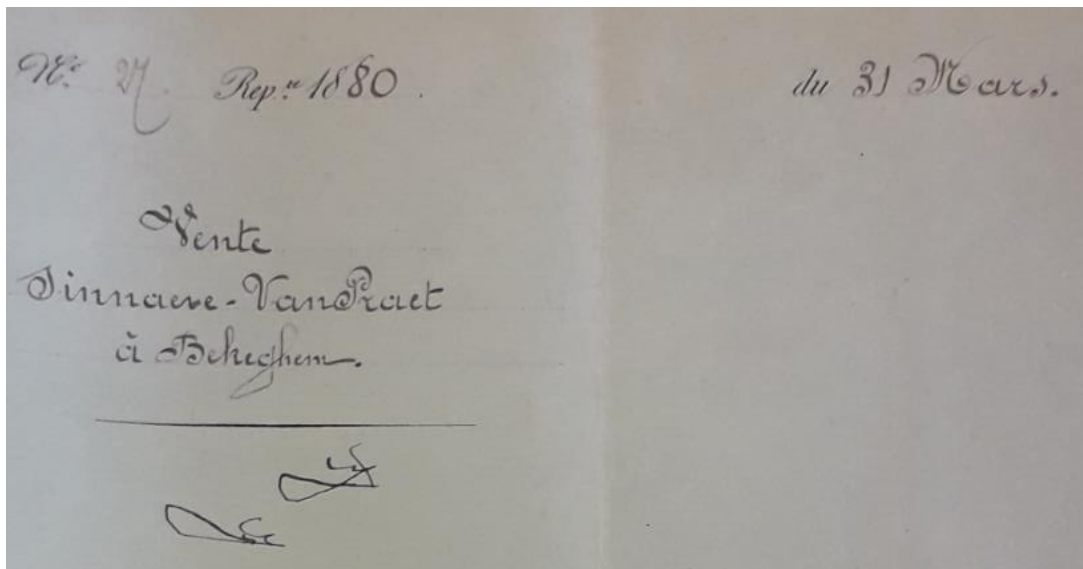 Nº 27. Rep.re 1880.
du 31 Mars.
Vente
Sinnaeve-VanPraet
à Bekeghem.